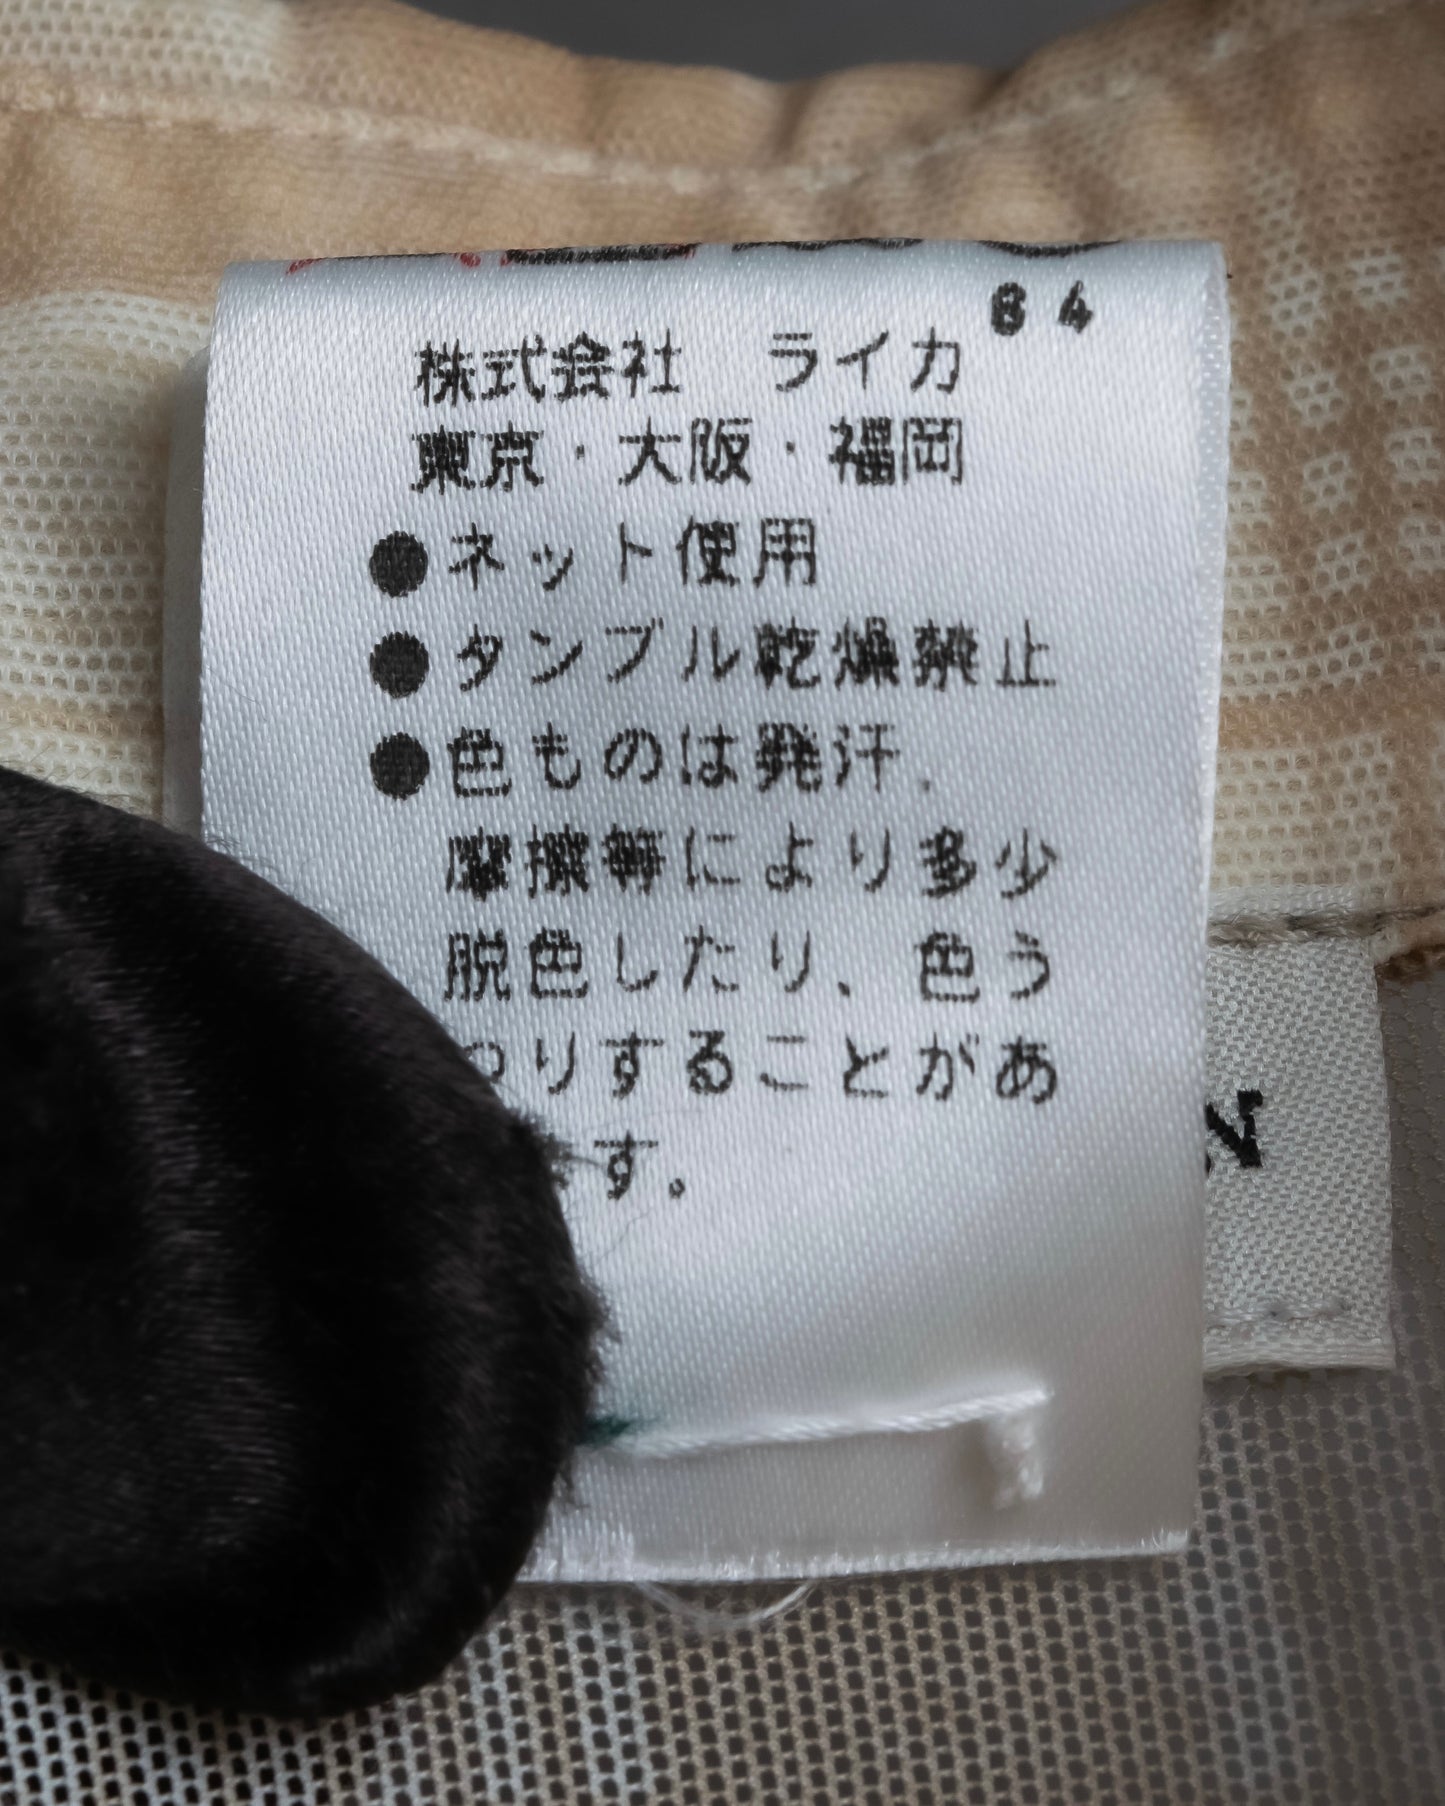 64
株式会社 ライカ
東京・大阪・福岡
●ネット使用
●タンブル乾燥禁止
●色ものは発汗、
摩擦等により多少
脱色したり、色う
つりすることがあ
す。
N